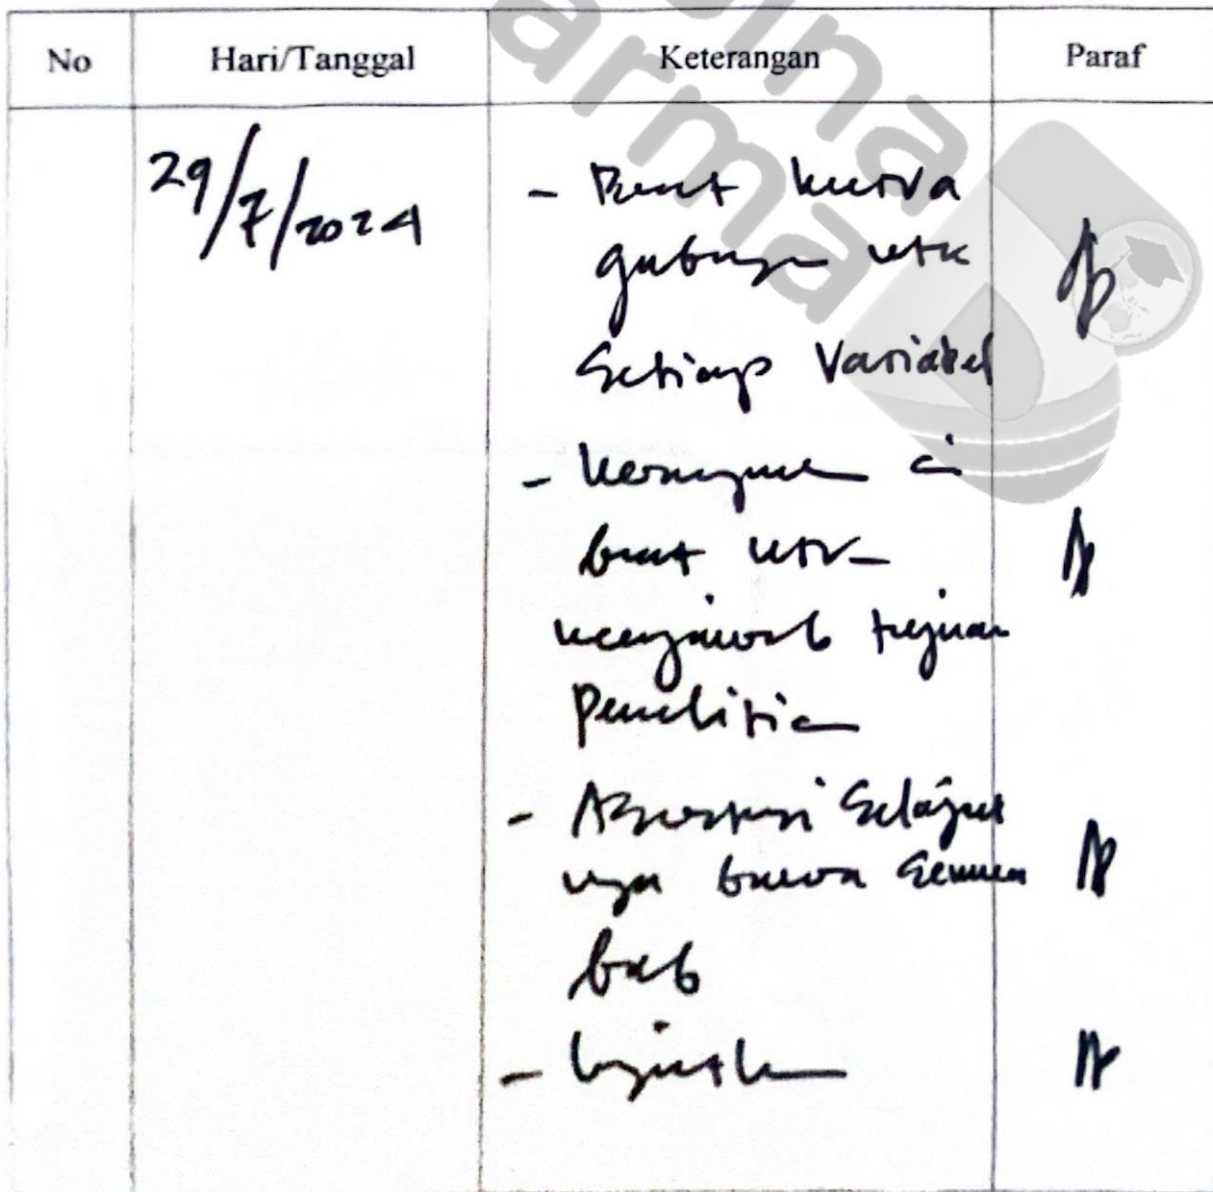 No Hari/Tanggal Keterangan Paraf
29/7/2024
- Buat kurva
gabungan utk
Setiap Variabel
- Kesimpulan di
buat utk
menjawab tujuan
Penelitian
- Asistensi Selanjut
nya bawa Semua
bab
- Lanjutkan